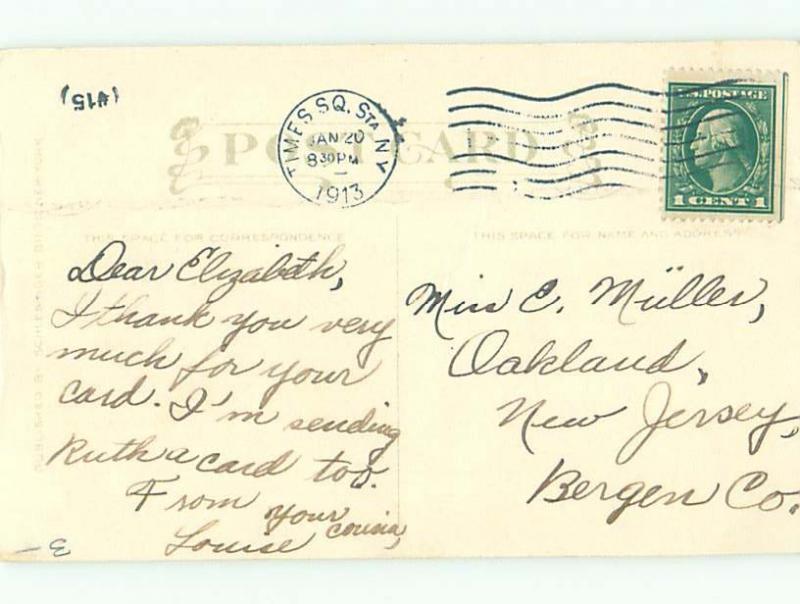 (#15)
POST CARD
TIMES SQ. STA. N Y
JAN 20
8 30 PM
1913
U.S. POSTAGE
1 CENT 1
THIS SPACE FOR CORRESPONDENCE
THIS SPACE FOR NAME AND ADDRESS
Dear Elizabeth,
I thank you very
much for your
card. I'm sending
Ruth a card too.
From your cousin,
Louise
Miss E. Müller,
Oakland,
New Jersey,
Bergen Co.
3-